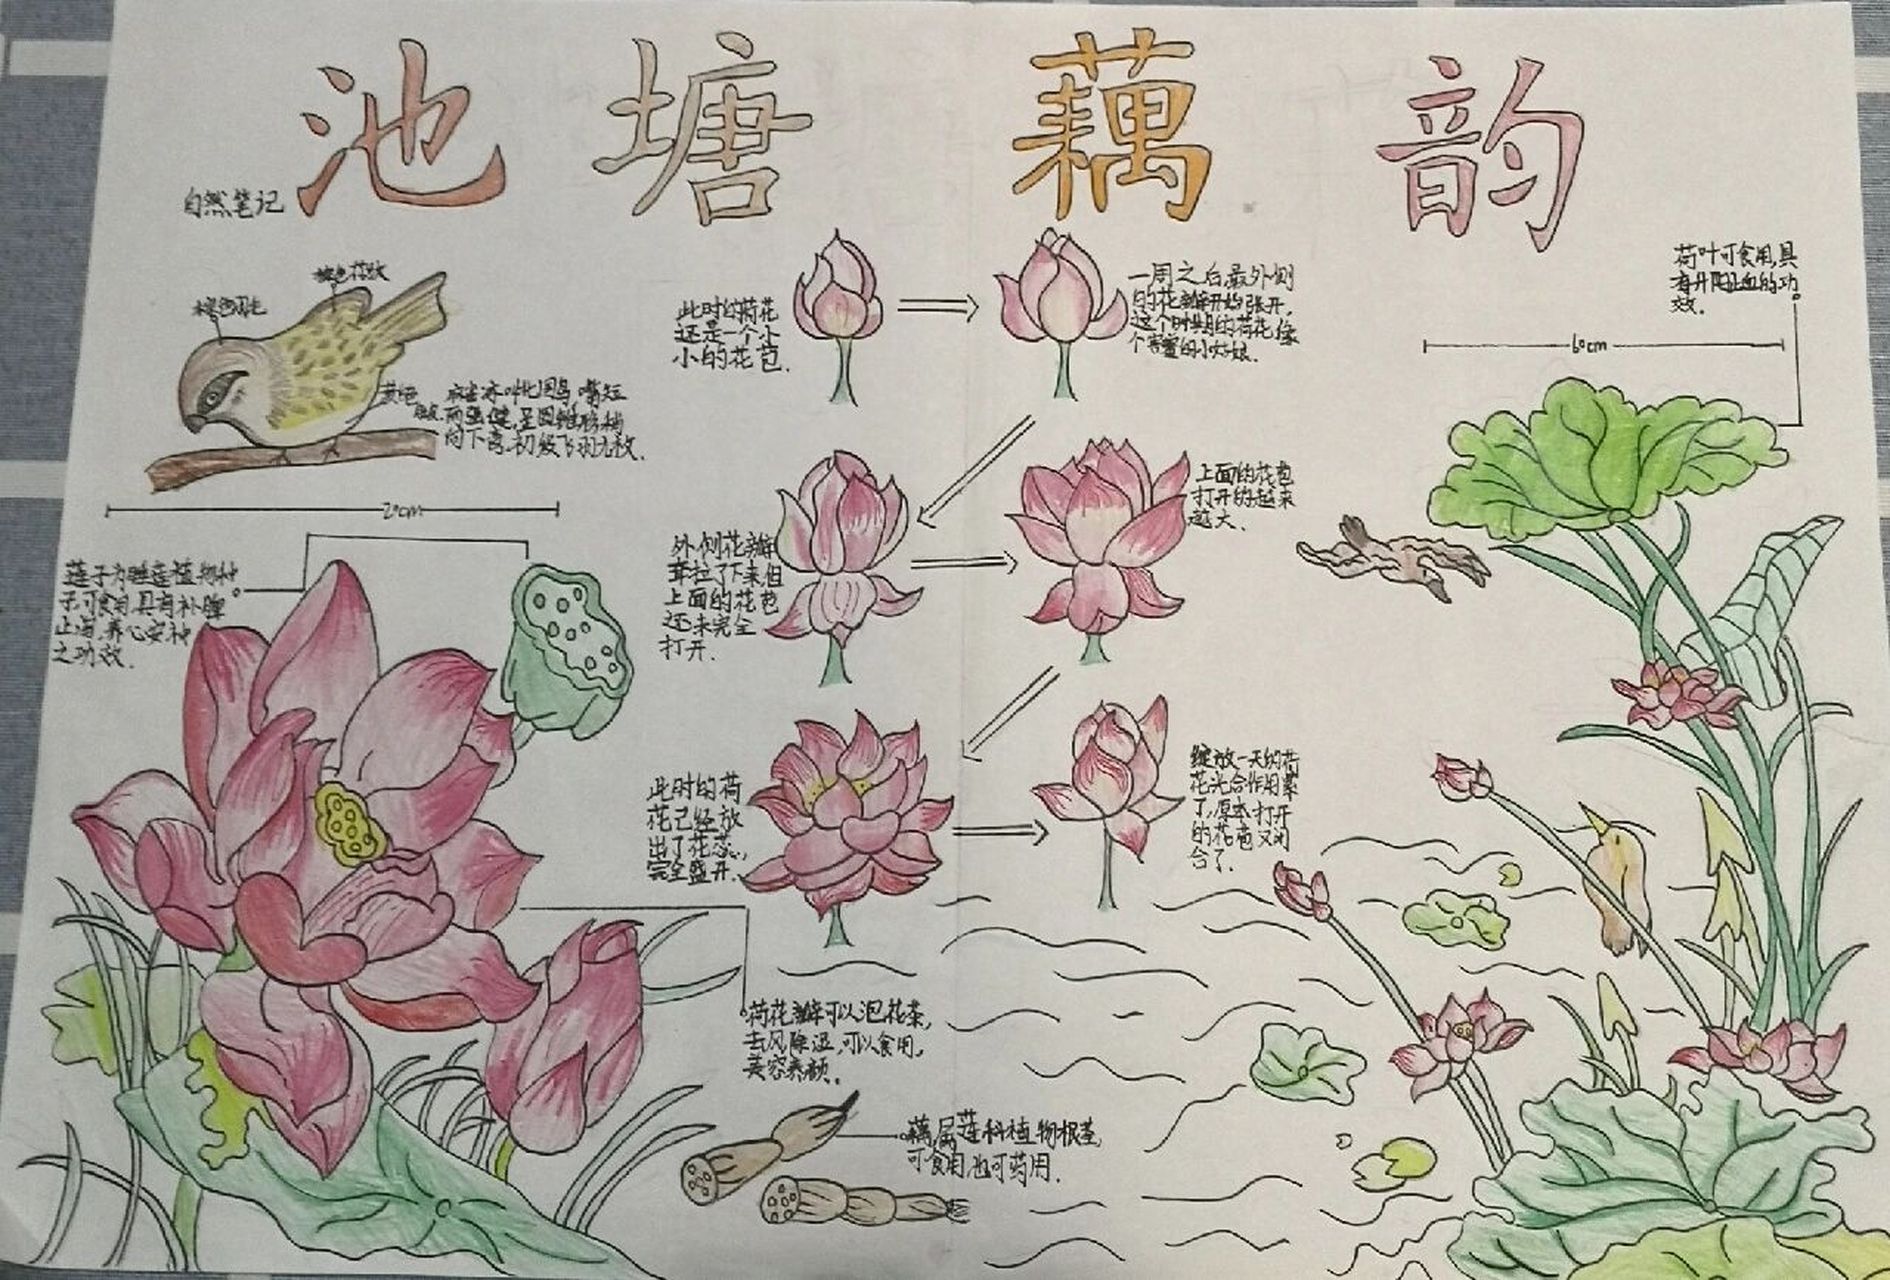 池塘藕韵
自然笔记
棕色花纹
棕色羽毛
此时的荷花
还是一个小
小的花苞.
一周之后,最外侧
的花瓣开始张开,
这个时期的荷花,像
个害羞的小姑娘.
荷叶可食用,具
有升阳止血的功
效.
60cm
黄色
麻雀亦叫北国鸟,嘴短
而强健,呈圆锥形,稍
向下弯,初级飞羽九枚.
20cm
外侧花瓣
耷拉了下来,但
上面的花苞
还未完全
打开.
上面的花苞
打开的越来
越大.
莲子为睡莲植物种
子,可食用,具有补脾
止泻,养心安神
之功效.
此时的荷
花已经放
出了花蕊,
完全盛开.
绽放一天的荷
花光合作用累
了,原本打开
的花苞又闭
合了.
荷花瓣可以泡花茶,
去风除湿,可以食用,
美容养颜.
藕属莲科植物根茎,
可食用也可药用.